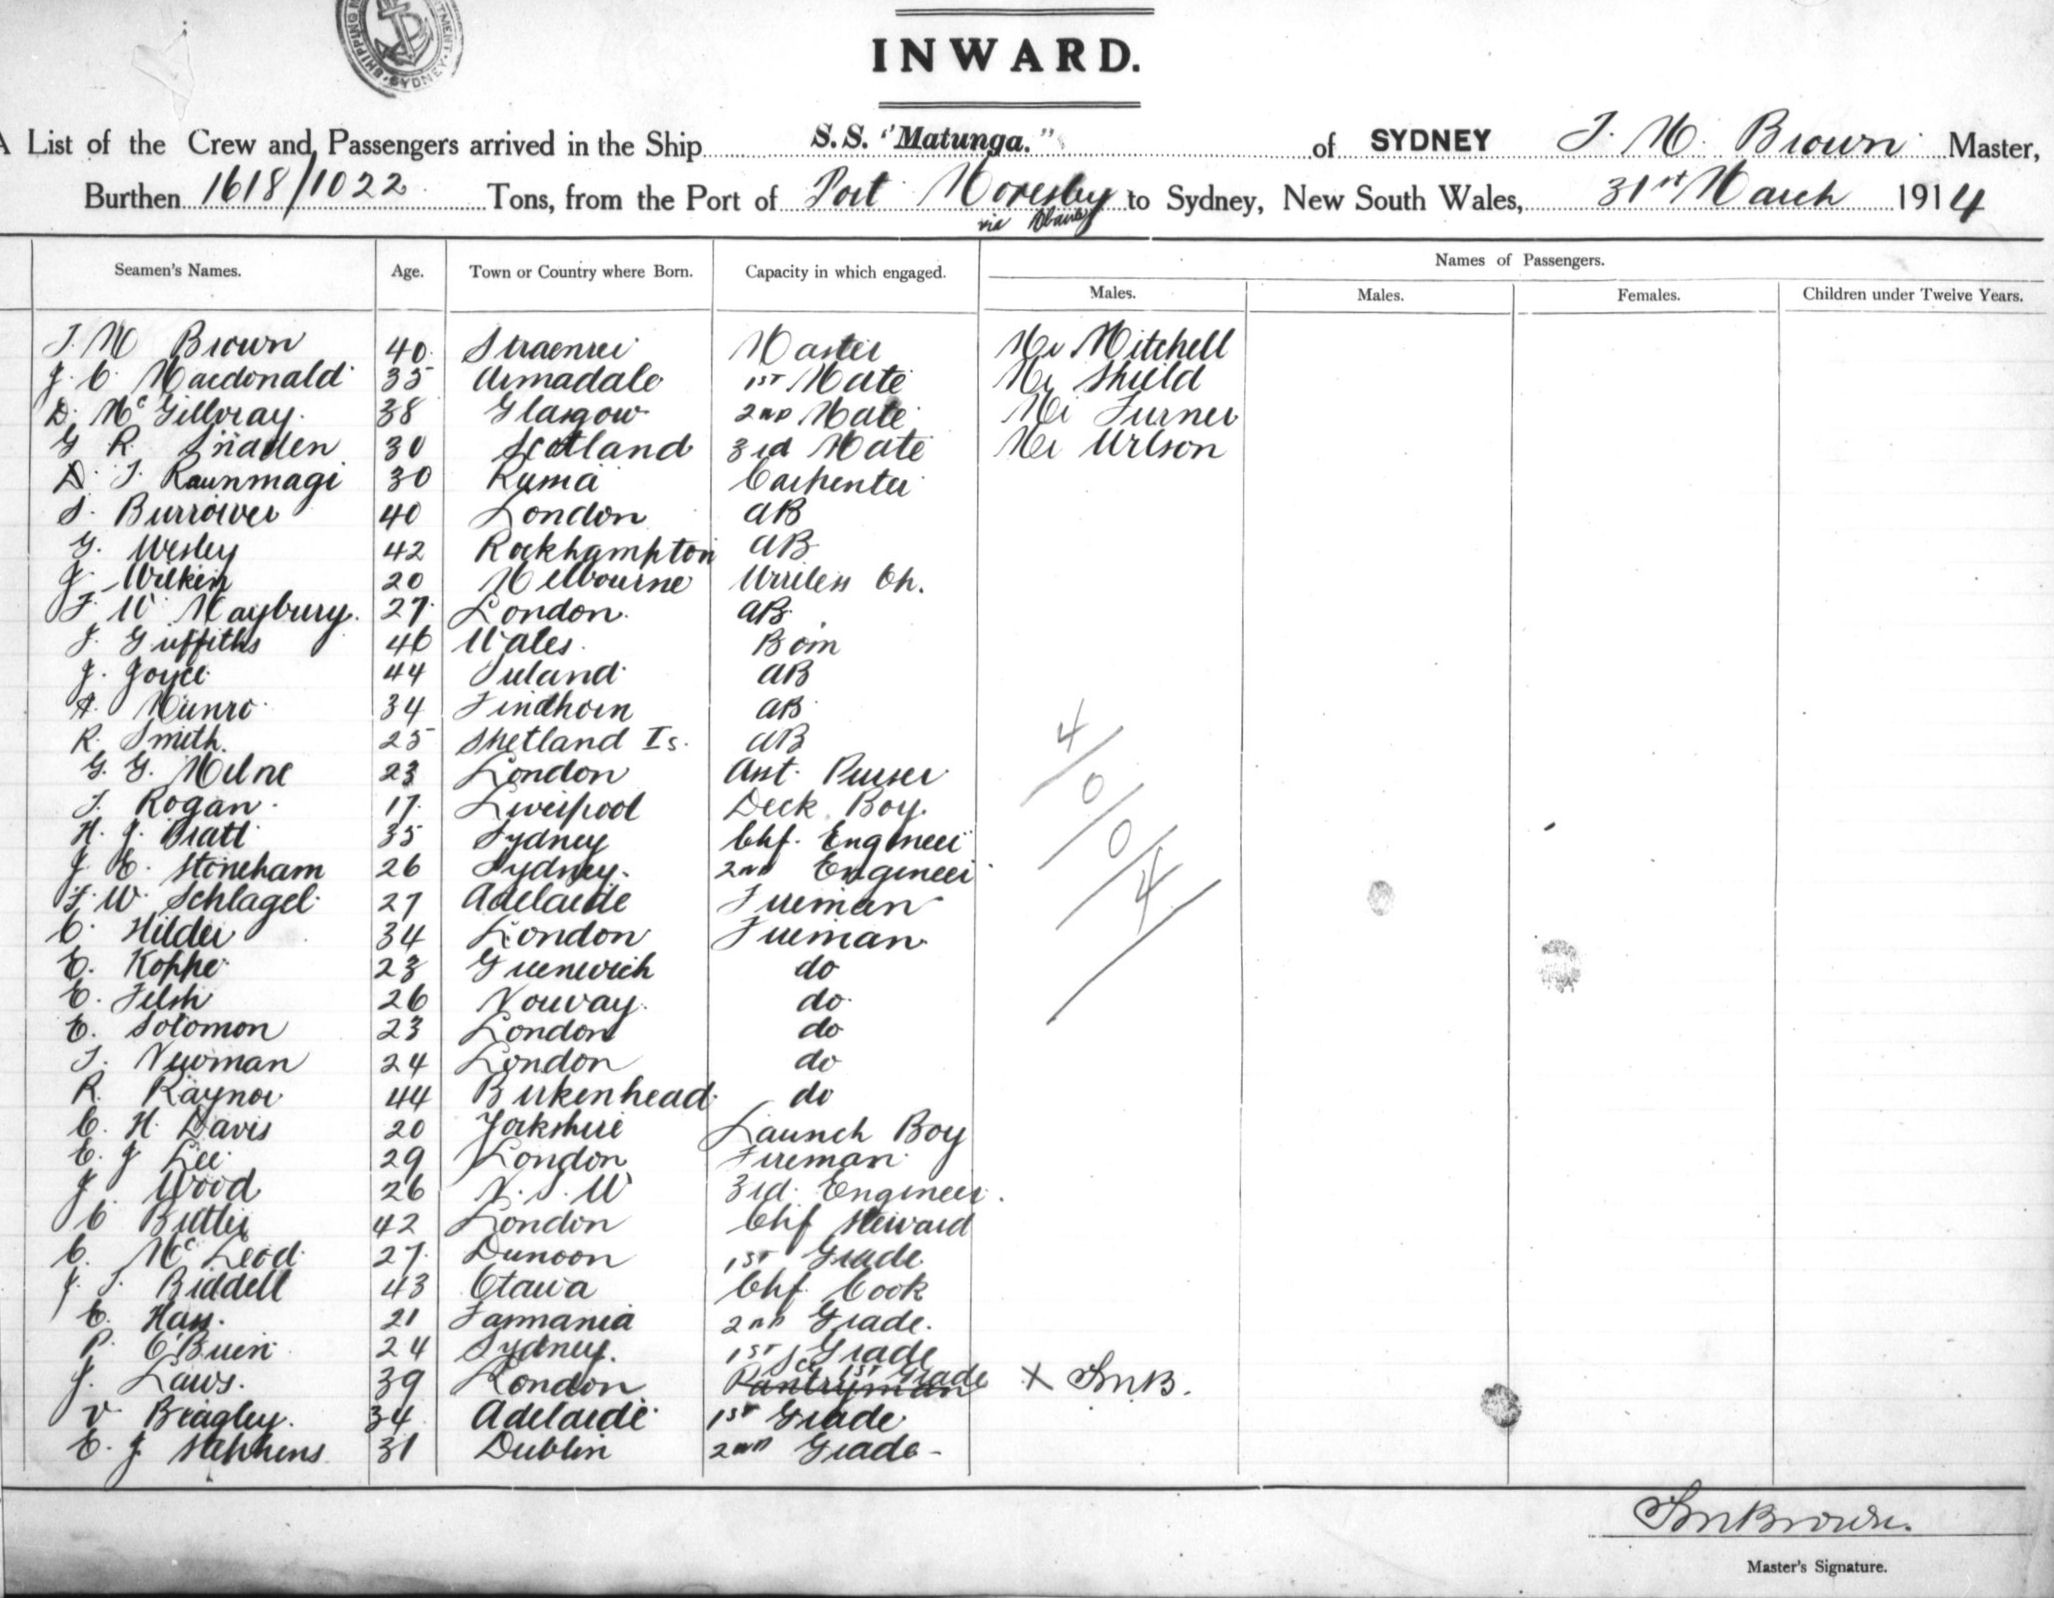 SHIPPING
SYDNEY
INWARD.
A List of the Crew and Passengers arrived in the Ship S.S. "Matunga." of SYDNEY T. M. Brown Master,
Burthen 1618/1022 Tons, from the Port of Port Moresby to Sydney, New South Wales, 31st March 1914
via
Seamen's Names. Age. Town or Country where Born. Capacity in which engaged. Names of Passengers.
Males. Males. Females. Children under Twelve Years.
T. M Brown 40 Master Mr Mitchell
J. C. Macdonald 35 Armadale 1st Mate Mr Shield
D. McGillvray. 38 Glasgow 2nd Mate Mr Turner
G R. Snadden 30 Scotland 3rd Mate Mr Wilson
T Raunmagi 30 Russia Carpenter
S. Burrower 40 London AB
G. Wesley 42 Rockhampton AB
J. Wilkin 20 Melbourne Wireless Op.
F. W Maybury. 27 London. AB.
J. Griffiths 46 Wales. Bosn
J. Joyce. 44 Ireland. AB
A. Munro 34 Findhorn AB
R. Smith. 25 Shetland Is. AB
G. G. Milne 23 London Asst. Purser
T. Rogan. 17 Liverpool Deck Boy.
H. J. Pratt 35 Sydney Chf. Engineer
J E. Stoneham 26 Sydney. 2nd Engineer
F. W. Schlagel. 27 Adelaide Fireman
C. Hilder 34 London Fireman
E. Koppe 23 Greenwich do
E. 26 Norway. do
E. Solomon 23 London do
T. Newman 24 London do
R. Raynor 44 Birkenhead. do
C. H. Davis 20 Yorkshire Launch Boy
E. J Lee 29 London Fireman
J Wood 26 N. S. W 3rd. Engineer.
C Butler 42 London Chf Steward
C. McLeod 27 Dunoon 1st Grade
J. T. Biddell 43 Otawa Chf. Cook
C. Hass. 21 Tasmania 2nd Grade.
P. O'Brien 24 Sydney. 1st Grade
J. Laws. 39 London Pantryman 1st Grade X TMB.
V Beagley. 34 Adelaide 1st Grade
E. J Stephens 31 Dublin 2nd Grade-
4/0/0/4
TM Brown.
Master's Signature.